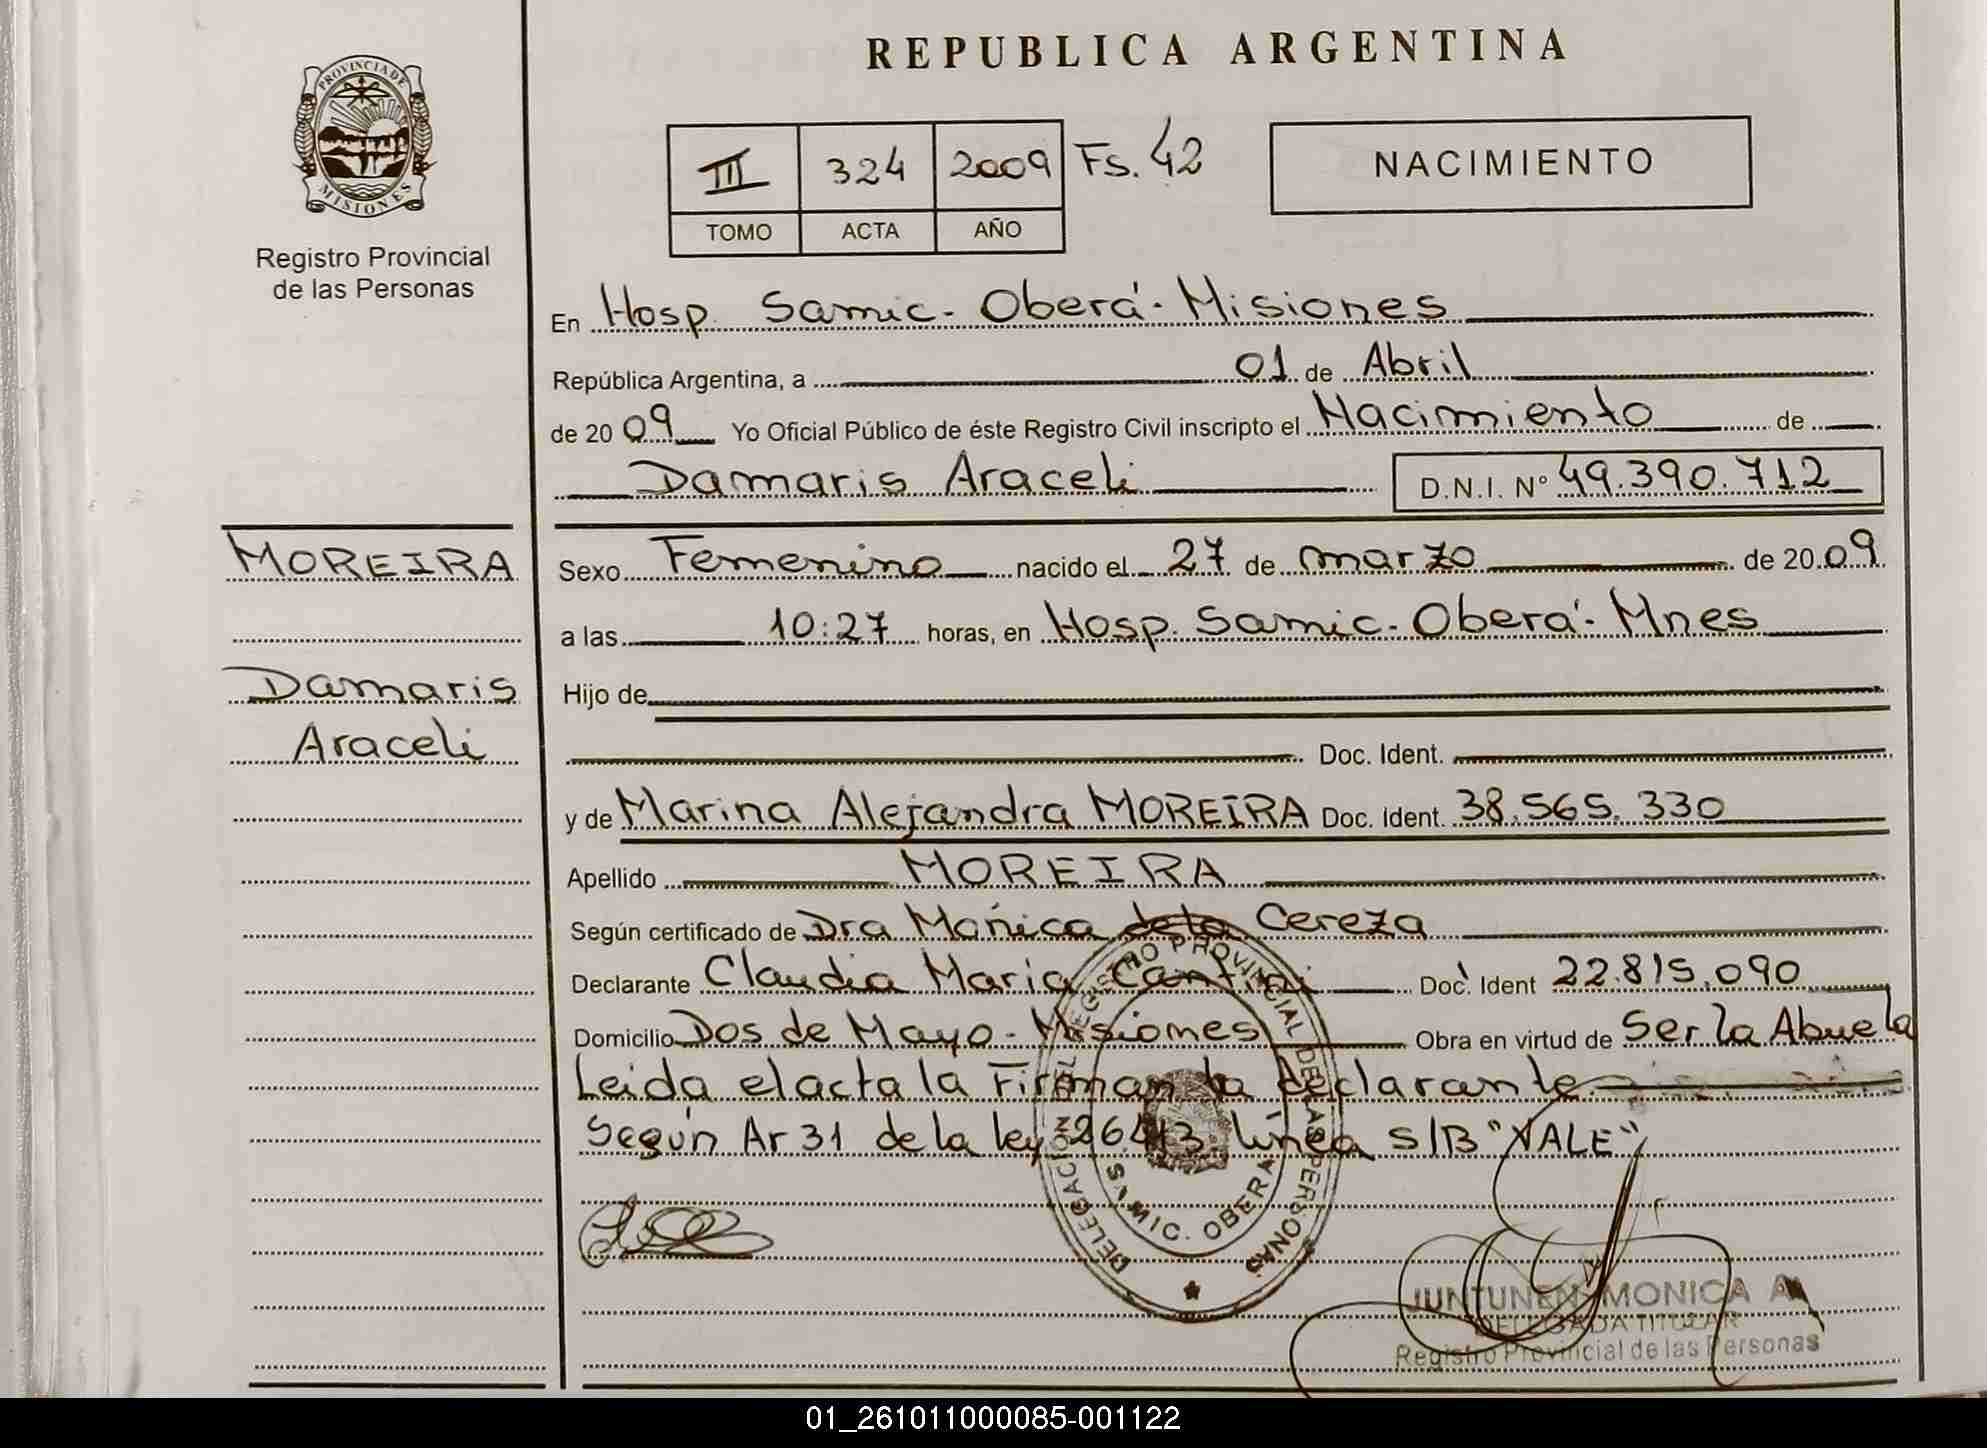 PROVINCIA DE
MISIONES
Registro Provincial
de las Personas
REPUBLICA ARGENTINA
III 324 2009 Fs. 42
TOMO ACTA AÑO
NACIMIENTO
En Hosp. Samic - Oberá - Misiones
República Argentina, a 01 de Abril
de 2009 Yo Oficial Público de éste Registro Civil inscripto el Nacimiento de
Damaris Araceli D.N.I. Nº 49.390.712
MOREIRA
Damaris
Araceli
Sexo Femenino nacido el 27 de marzo de 2009
a las 10:27 horas, en Hosp. Samic - Oberá - Mnes
Hijo de
Doc. Ident.
y de Marina Alejandra MOREIRA Doc. Ident. 38.565.330
Apellido MOREIRA
Según certificado de Dra Moñica Cereza
Declarante Claudia Maria Doc. Ident 22.815.090
Domicilio Dos de Mayo - Misiones Obra en virtud de Ser la Abuela
Leida el acta la Firman la declarante
Según Ar 31 de la ley 26.413 línea S/B "VALE"
DELEGACION DEL REGISTRO PROVINCIAL DE LAS PERSONAS
SAMIC. OBERA
JUNTUNEN MONICA A
DELEGADA TITULAR
Registro Provincial de las Personas
01_261011000085-001122